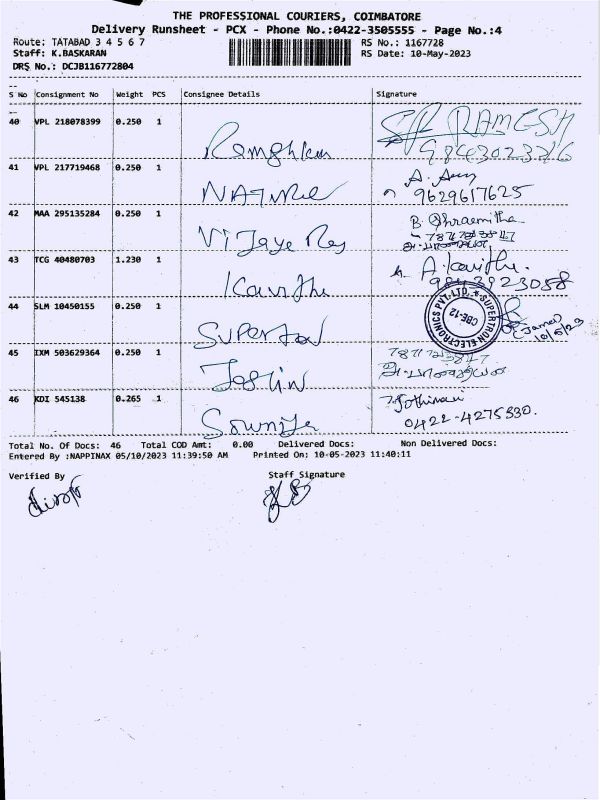 THE PROFESSIONAL COURIERS, COIMBATORE
Delivery Runsheet - PCX - Phone No.:0422-3505555 - Page No.:4
Route: TATABAD 3 4 5 6 7
RS No.: 1167728
Staff: K.BASKARAN
RS Date: 10-May-2023
DRS No.: DCJB116772804
S No Consignment No Weight PCS Consignee Details Signature
40 VPL 218078399 0.250 1
RAMESH
41 VPL 217719468 0.250 1
9629617625
42 MAA 295135284 0.250 1
Vijaye
43 TCG 40480703 1.230 1 A. Kavitha.
Kavitha
44 SLM 10450155 0.250 1
SUPERTRON ELECTRONICS PVT.LTD. CBE-12
10/5/23
45 IXM 503629364 0.250 1
Joslin
46 KDI 545138 0.265 1
0422-4275330.
Total No. Of Docs: 46 Total COD Amt: 0.00 Delivered Docs: Non Delivered Docs:
Entered By :NAPPINAX 05/10/2023 11:39:50 AM Printed On: 10-05-2023 11:40:11
Verified By Staff Signature